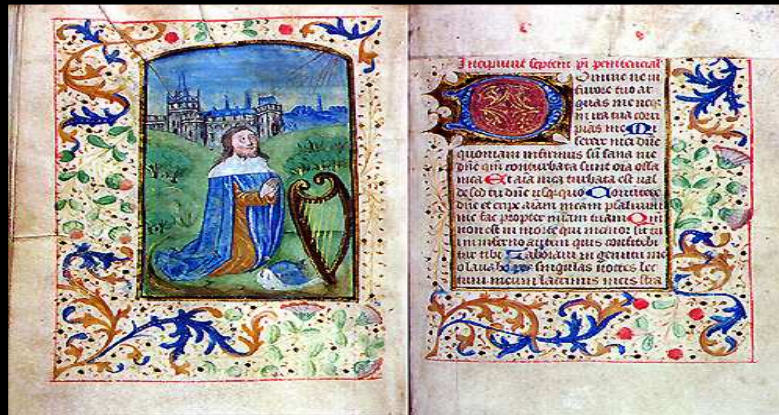 Incipiunt septem ps penitencial
Domine ne in
furore tuo ar
guas me neqz
in ira tua corri
pias me Mi
serere mei dne
quoniam infirmus sū sana me
dne qm conturbata sunt oīa ossa
mea Et aīa mea turbata est val
de sed tu dne usquequo Convertere
dne et eripe aīam meam salvum
me fac propter mīam tuam Qm
non est in morte qui memor sit tui
in inferno autem quis confitebi
tur tibi Laboravi in gemitu me
o lavabo per singulas noctes lec
tum meum lacrimis meis stra